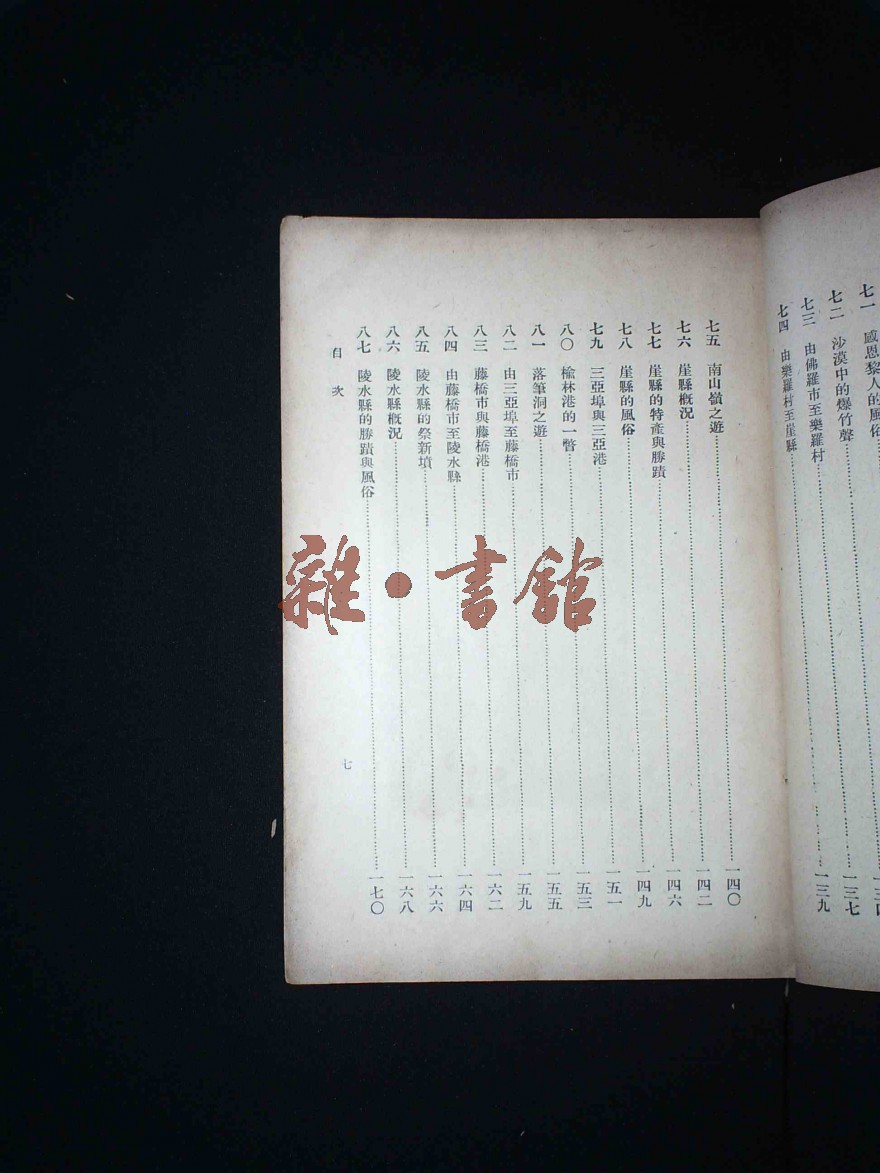 七一 感恩黎人的風俗
七二 沙漠中的爆竹聲……一三七
七三 由佛羅市至樂羅村……一三九
七四 由樂羅村至崖縣
七五 南山嶺之遊……一四〇
七六 崖縣概況……一四二
七七 崖縣的特產與勝蹟……一四六
七八 崖縣的風俗……一四九
七九 三亞埠與三亞港……一五一
八〇 榆林港的一瞥……一五三
八一 落筆洞之遊……一五五
八二 由三亞埠至藤橋市……一五九
八三 藤橋市與藤橋港……一六二
八四 由藤橋市至陵水縣……一六四
八五 陵水縣的祭新墳……一六六
八六 陵水縣概況……一六八
八七 陵水縣的勝蹟與風俗……一七〇
目次
七
雜·書館